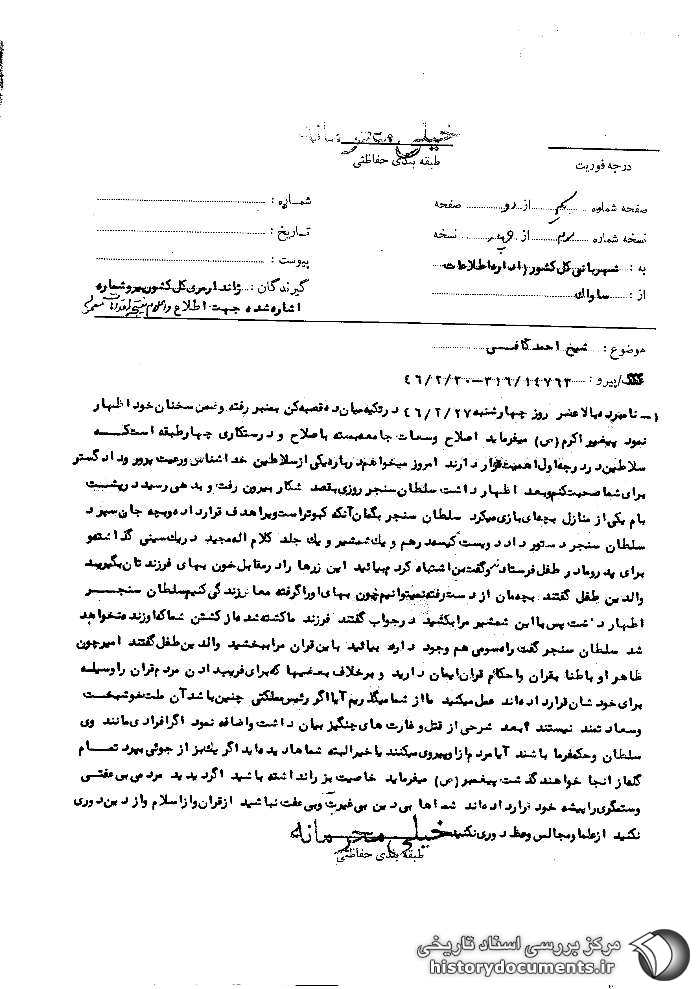 خیلی محرمانه
طبقه بندی حفاظتی
درجه فوریت
صفحه شماره یکم از دو صفحه
نسخه شماره از نسخه
به : شهربانی کل کشور (اداره اطلاعات
از : ساواک
شماره :
تاریخ :
پیوست :
گیرندگان : ژاندارمری کل کشور پیرو شماره
اشاره شده جهت اطلاع و اعلام نتیجه اقدامات معموله
موضوع : شیخ احمد کافی
پیرو : ۳۱۶/۱۴۷۶۳-۴۶/۲/۲۰
۱- نامبرده بالا عصر روز چهارشنبه ۴۶/۲/۲۷ در تکیه میان ده قصبه کن بمنبر رفته و ضمن سخنان خود اظهار
نمود پیغمبر اکرم (ص) میفرماید اصلاح وسعات جامعه بسته باصلاح و درستکاری چهار طبقه است که
سلاطین در درجه اول اهمیت قرار دارند امروز میخواهم درباره یکی از سلاطین خداشناس ورعیت پرور و دادگستر
برای شما صحبت کنم وبعد اظهار داشت سلطان سنجر روزی بقصد شکار بیرون رفت و بدهی رسید در پشت
بام یکی از منازل بچه ای بازی میکرد سلطان سنجر بگمان آنکه کبوتر است ویرا هدف قرار داده وبچه جان سپرد
سلطان سنجر دستور داد دویست کیسه درهم و یک شمشیر و یک جلد کلام اله مجید در یک سینی گذاشته و
برای پدر ومادر طفل فرستاد وگفت من اشتباه کردم بیائید این زرها را در مقابل خون بهای فرزندتان بگیرید
والدین طفل گفتند بچه مان از دست رفته نمیتوانیم چون بهای اورا گرفته معا زندگی کنیم سلطان سنجر
اظهار داشت پس با این شمشیر مرا بکشید در جواب گفتند فرزند ما کشته شده از کشتن شما که او زنده نخواهد
شد سلطان سنجر گفت راه سومی هم وجود دارد بیائید با این قران مرا ببخشید والدین طفل گفتند امیر چون
ظاهر او باطنا بقران واحکام قران ایمان دارید و برخلاف بعضیها که برای فریب دادن مردم قران را وسیله
برای خودشان قرار داده اند عمل میکنید ما از شما میگذریم آیا اگر رئیس مملکتی چنین باشد آن ملت خوشبخت
وسعادتمند نیستند ؟ بعد شرحی از قتل و غارت های چنگیز بیان داشت واضافه نمود اگر افرادی مانند وی
سلطان وحکمفرما باشند آیا مردم از او پیروی میکنند یا خیر البته شماها دیده اید اگر یک بز از جوئی بپرد تمام
گله از انجا خواهند گذشت پیغمبر (ص) میفرماید خاصیت بز را نداشته باشید اگر دیدید مردمی بی عفتی
وستمگری را پیشه خود قرار داده اند شماها بی دین بی غیرت وبی عفت نباشید از قران واز اسلام واز دین دوری
نکنید از علما ومجالس وعظ دوری نکنید
خیلی محرمانه
طبقه بندی حفاظتی
مرکز بررسی اسناد تاریخی
historydocuments.ir